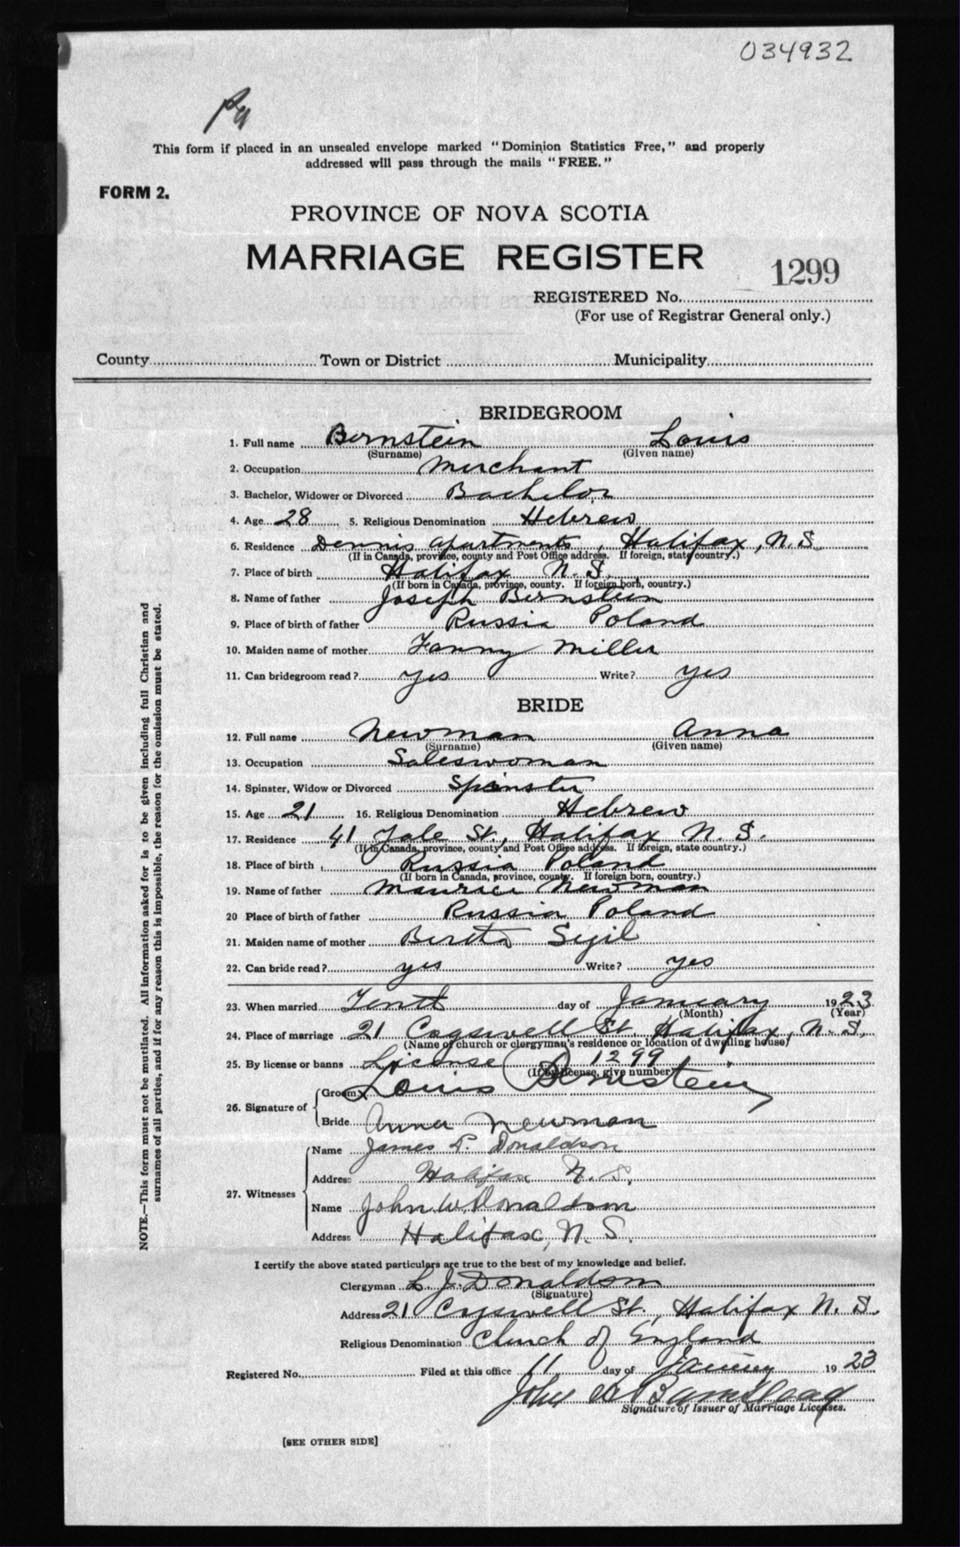 034932
This form if placed in an unsealed envelope marked "Dominion Statistics Free," and properly
addressed will pass through the mails "FREE."
FORM 2.
PROVINCE OF NOVA SCOTIA
MARRIAGE REGISTER
1299
REGISTERED No.
(For use of Registrar General only.)
County Town or District Municipality
BRIDEGROOM
1. Full name Bernstein Louis
(Surname) (Given name)
2. Occupation Merchant
3. Bachelor, Widower or Divorced Bachelor
4. Age 28 5. Religious Denomination Hebrew
6. Residence Dennis apartments, Halifax, N.S.
(If in Canada, province, county and Post Office address. If foreign, state country.)
7. Place of birth Halifax N.S.
(If born in Canada, province, county. If foreign born, country.)
8. Name of father Joseph Bernstein
9. Place of birth of father Russia Poland
10. Maiden name of mother Fanny Miller
11. Can bridegroom read? yes Write? yes
BRIDE
12. Full name Newman Anna
(Surname) (Given name)
13. Occupation Saleswoman
14. Spinster, Widow or Divorced Spinster
15. Age 21 16. Religious Denomination Hebrew
17. Residence 41 St., Halifax N.S.
(If in Canada, province, county and Post Office address. If foreign, state country.)
18. Place of birth Russia Poland
(If born in Canada, province, county. If foreign born, country.)
19. Name of father Maurice Newman
20 Place of birth of father Russia Poland
21. Maiden name of mother
22. Can bride read? yes Write? yes
23. When married Tenth day of January 1923
(Month) (Year)
24. Place of marriage 21 Cogswell St. Halifax, N.S.
(Name of church or clergyman's residence or location of dwelling house)
25. By license or banns License 1299
(If by license, give number)
26. Signature of
Groom Louis Bernstein
Bride Anna Newman
27. Witnesses
Name James P. Donaldson
Address Halifax N.S.
Name John W. Donaldson
Address Halifax, N.S.
I certify the above stated particulars are true to the best of my knowledge and belief.
Clergyman L. J. Donaldson
(Signature)
Address 21 Cogswell St., Halifax N.S.
Religious Denomination Church of England
Registered No. Filed at this office 11 day of January 1923
John
Signature of Issuer of Marriage Licenses.
[SEE OTHER SIDE]
NOTE.—This form must not be mutilated. All information asked for is to be given including full Christian and
surnames of all parties, and if for any reason this is impossible, the reason for the omission must be stated.